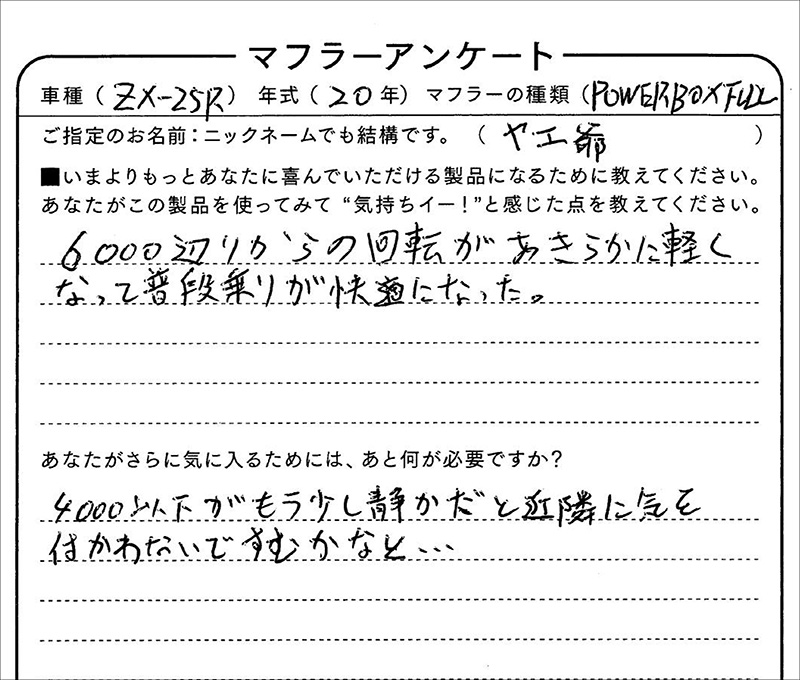 マフラーアンケート
車種（ZX-25R）年式（20年）マフラーの種類（POWERBOX FULL
ご指定のお名前：ニックネームでも結構です。（ヤエ爺）
■いまよりもっとあなたに喜んでいただける製品になるために教えてください。
あなたがこの製品を使ってみて“気持ちイー！”と感じた点を教えてください。
6000辺りからの回転があきらかに軽く
なって普段乗りが快適になった。
あなたがさらに気に入るためには、あと何が必要ですか？
4000以下がもう少し静かだと近隣に気を
付かわないですむかなと…